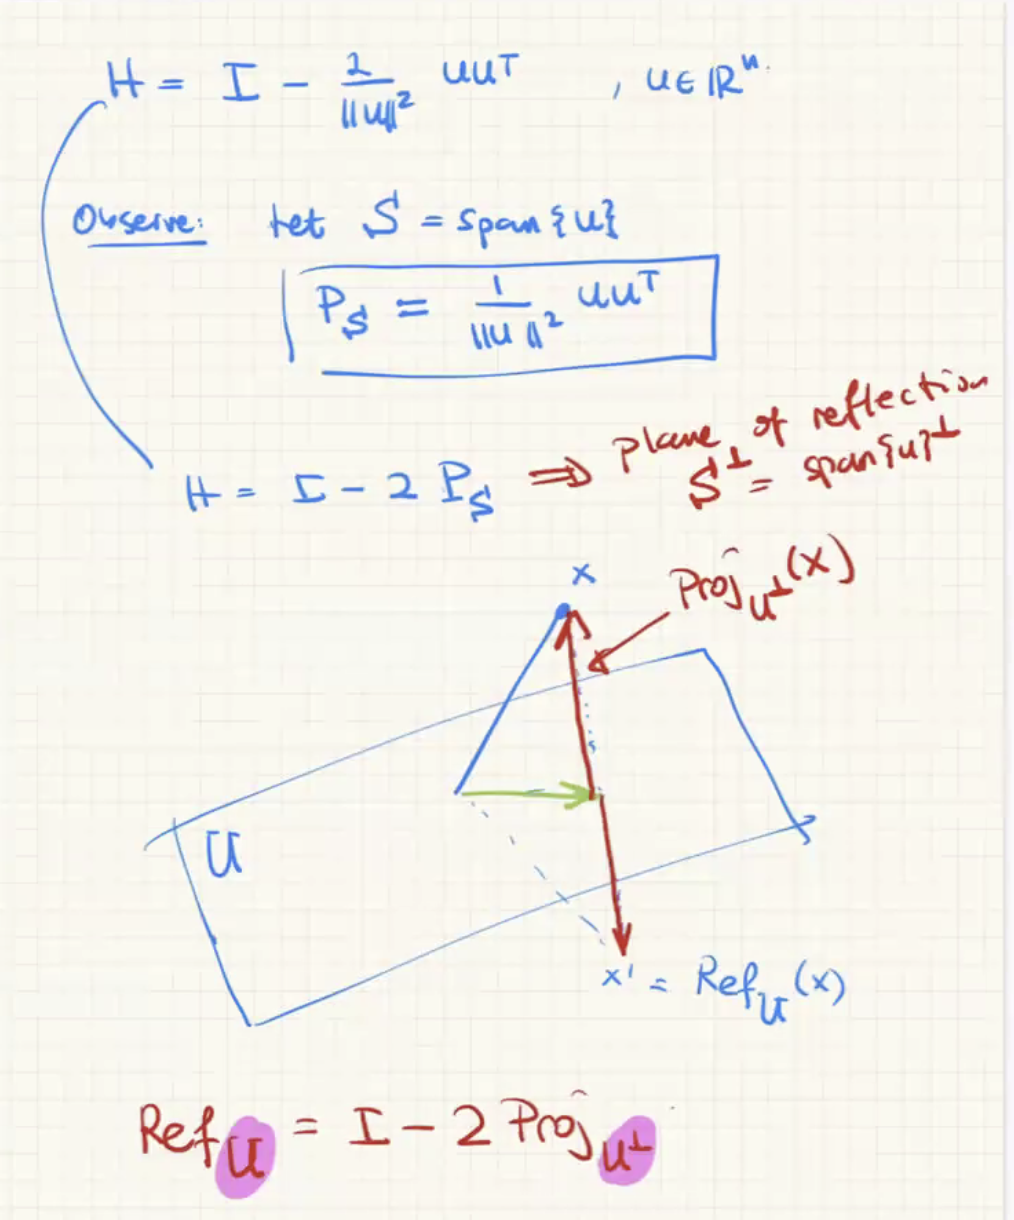 H = I - 2/||u||² uuᵀ , u ∈ ℝⁿ.
Observe: Let S = span{u}
P_S = 1/||u||² uuᵀ
H = I - 2 P_S ⟹ plane of reflection
S^⊥ = span{u}^⊥
x
Proj_U^⊥(x)
U
x' = Ref_U(x)
Ref_U = I - 2 Proj_U^⊥